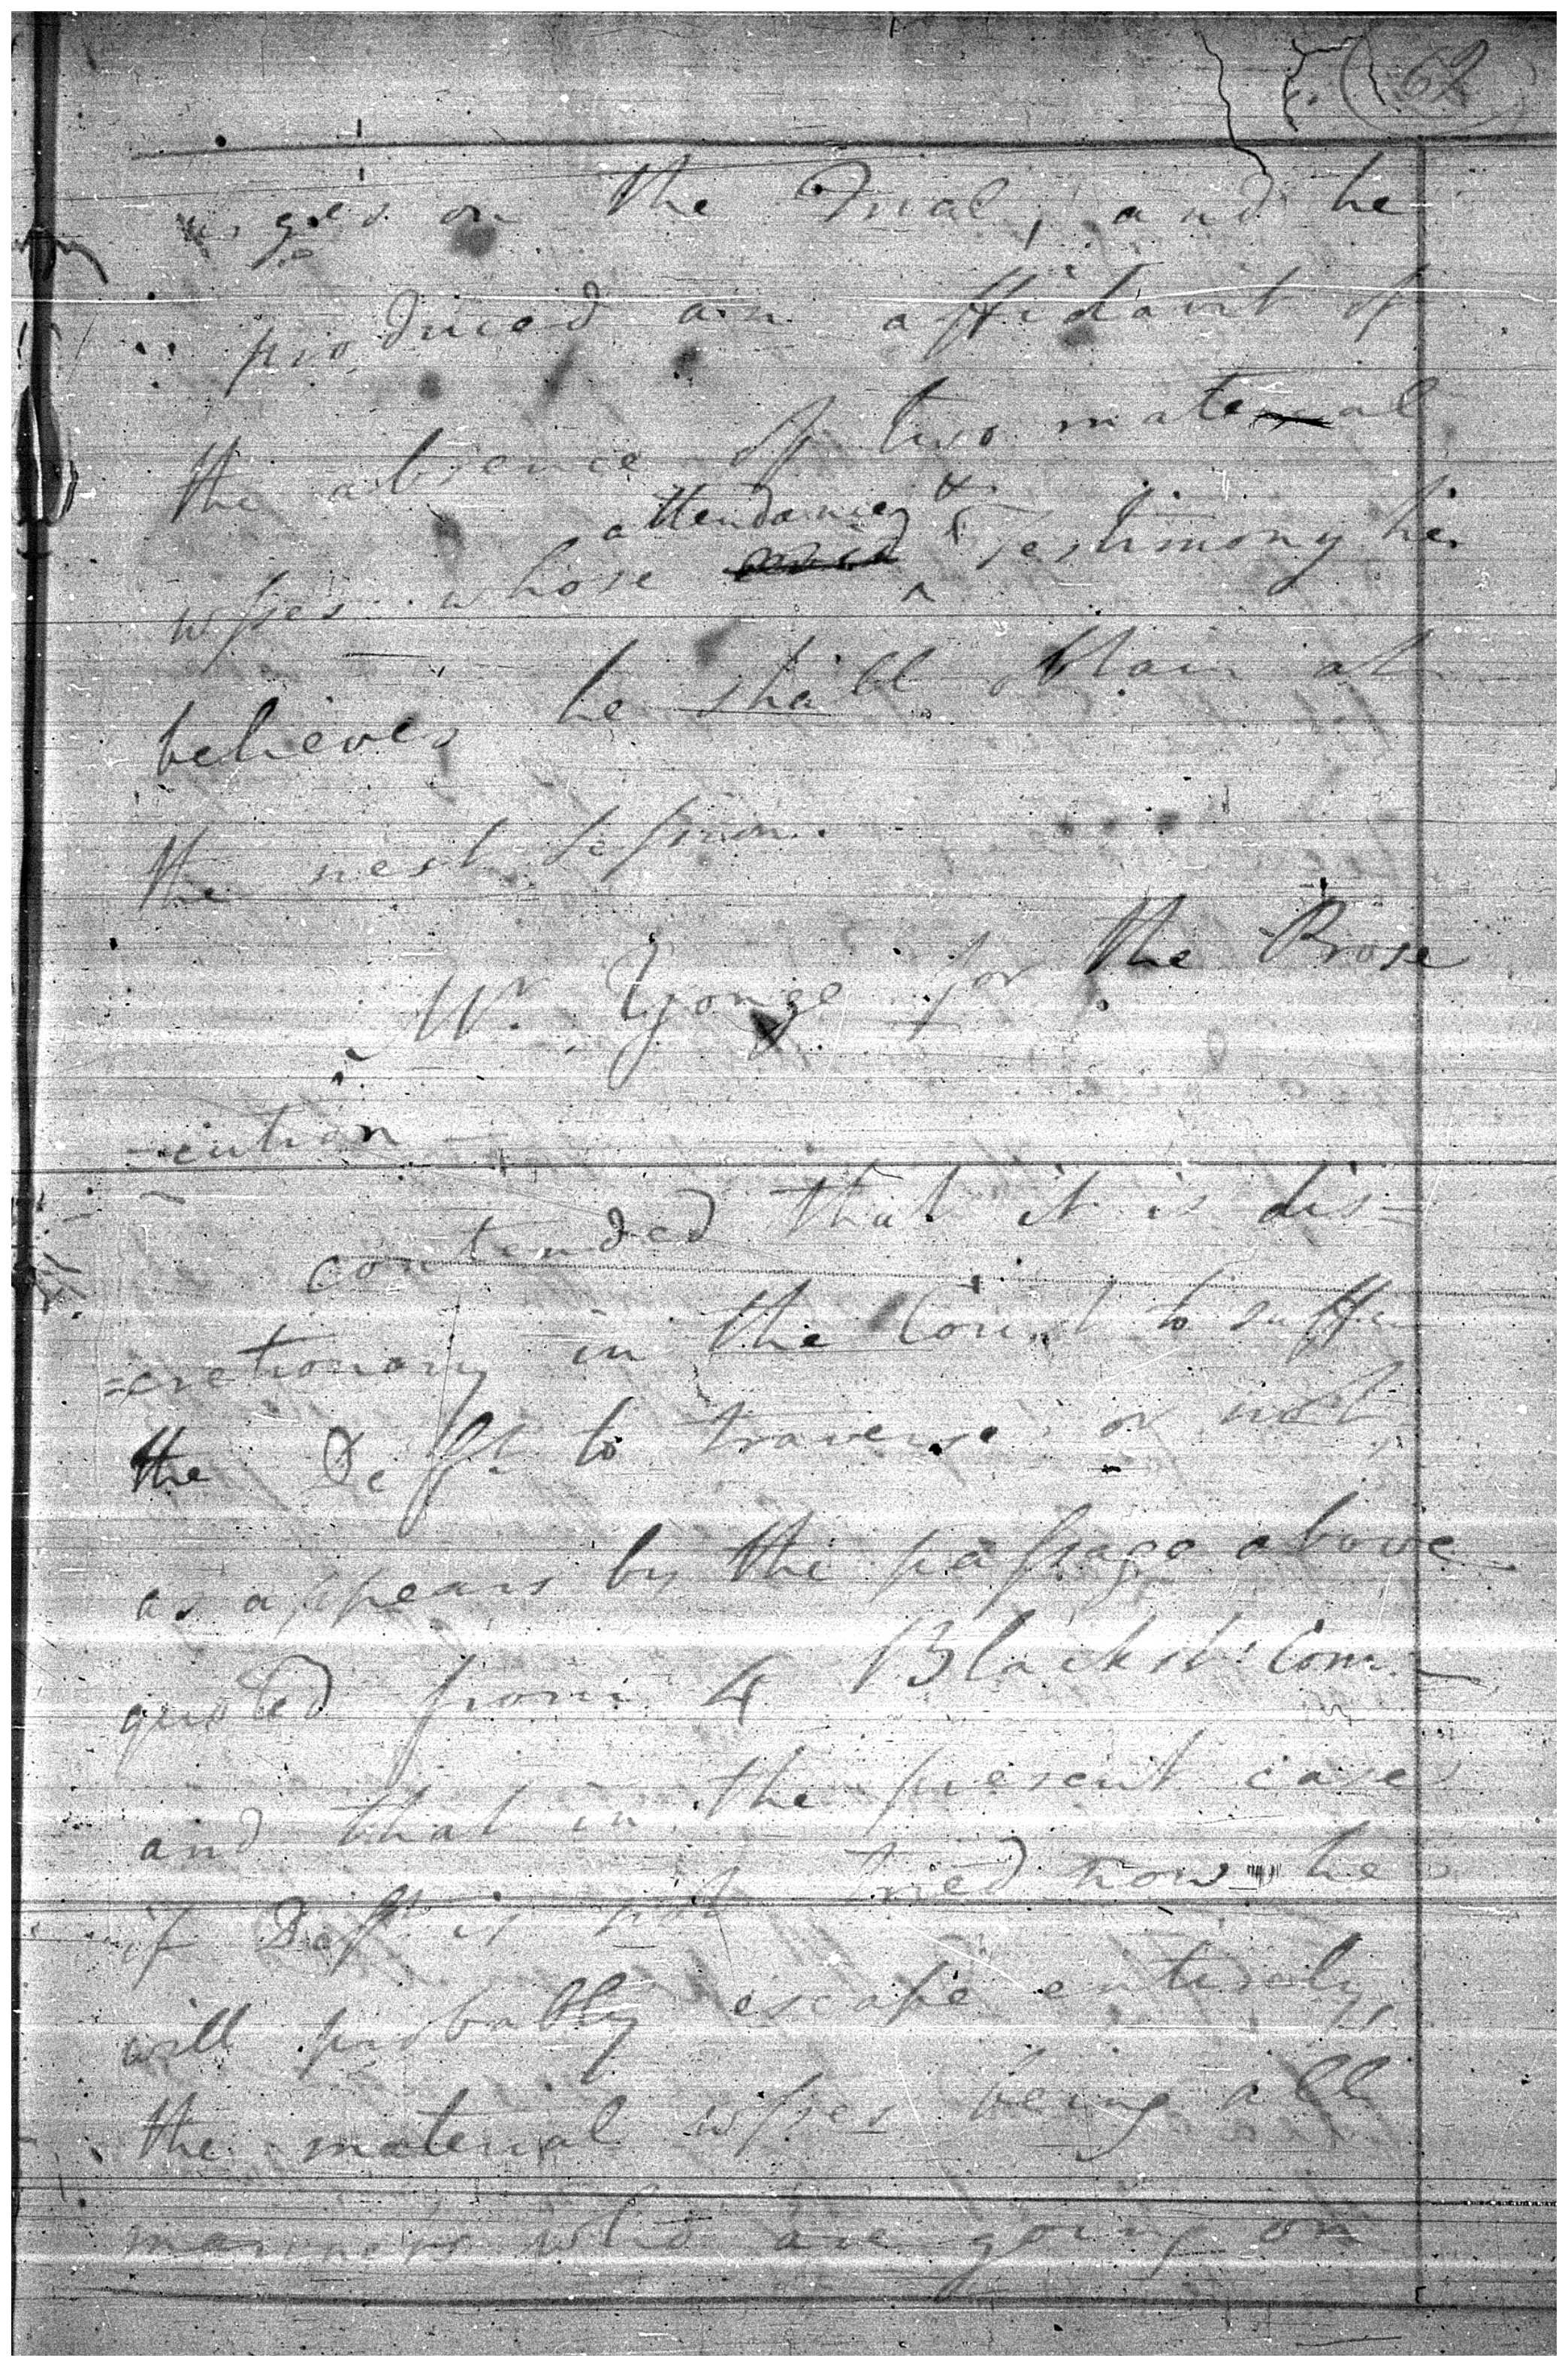 62
urges on the Trial, and he
produced an affidavit of
the absence of two material
attendance &
wsses whose testimony he
believes he shall obtain at
the next Session.
Mr. Yonge for the Prose
-cution
contended that it is dis=
=cretionary in the Court to suffer
the Defft. to traverse or not,
as appears by the passage above
quoted from 4 Blackst. Com.
and that in the present case
if Deft. is not tried now he
will probably escape entirely,
the material wsses being all
mariners who are going on